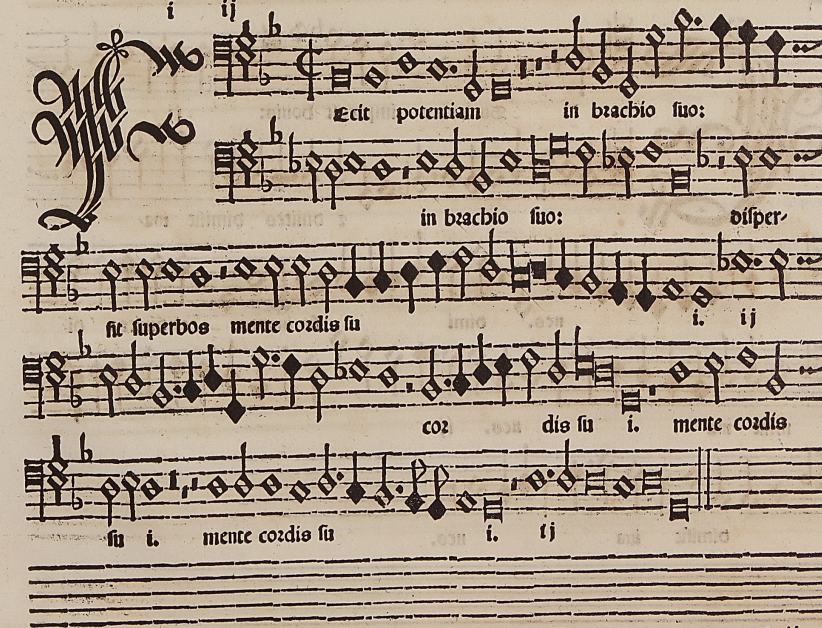 i ij
Fecit potentiam in brachio suo:
in brachio suo: disper-
sit superbos mente cordis su i. ij
cor dis su i. mente cordis
su i. mente cordis su i. ij